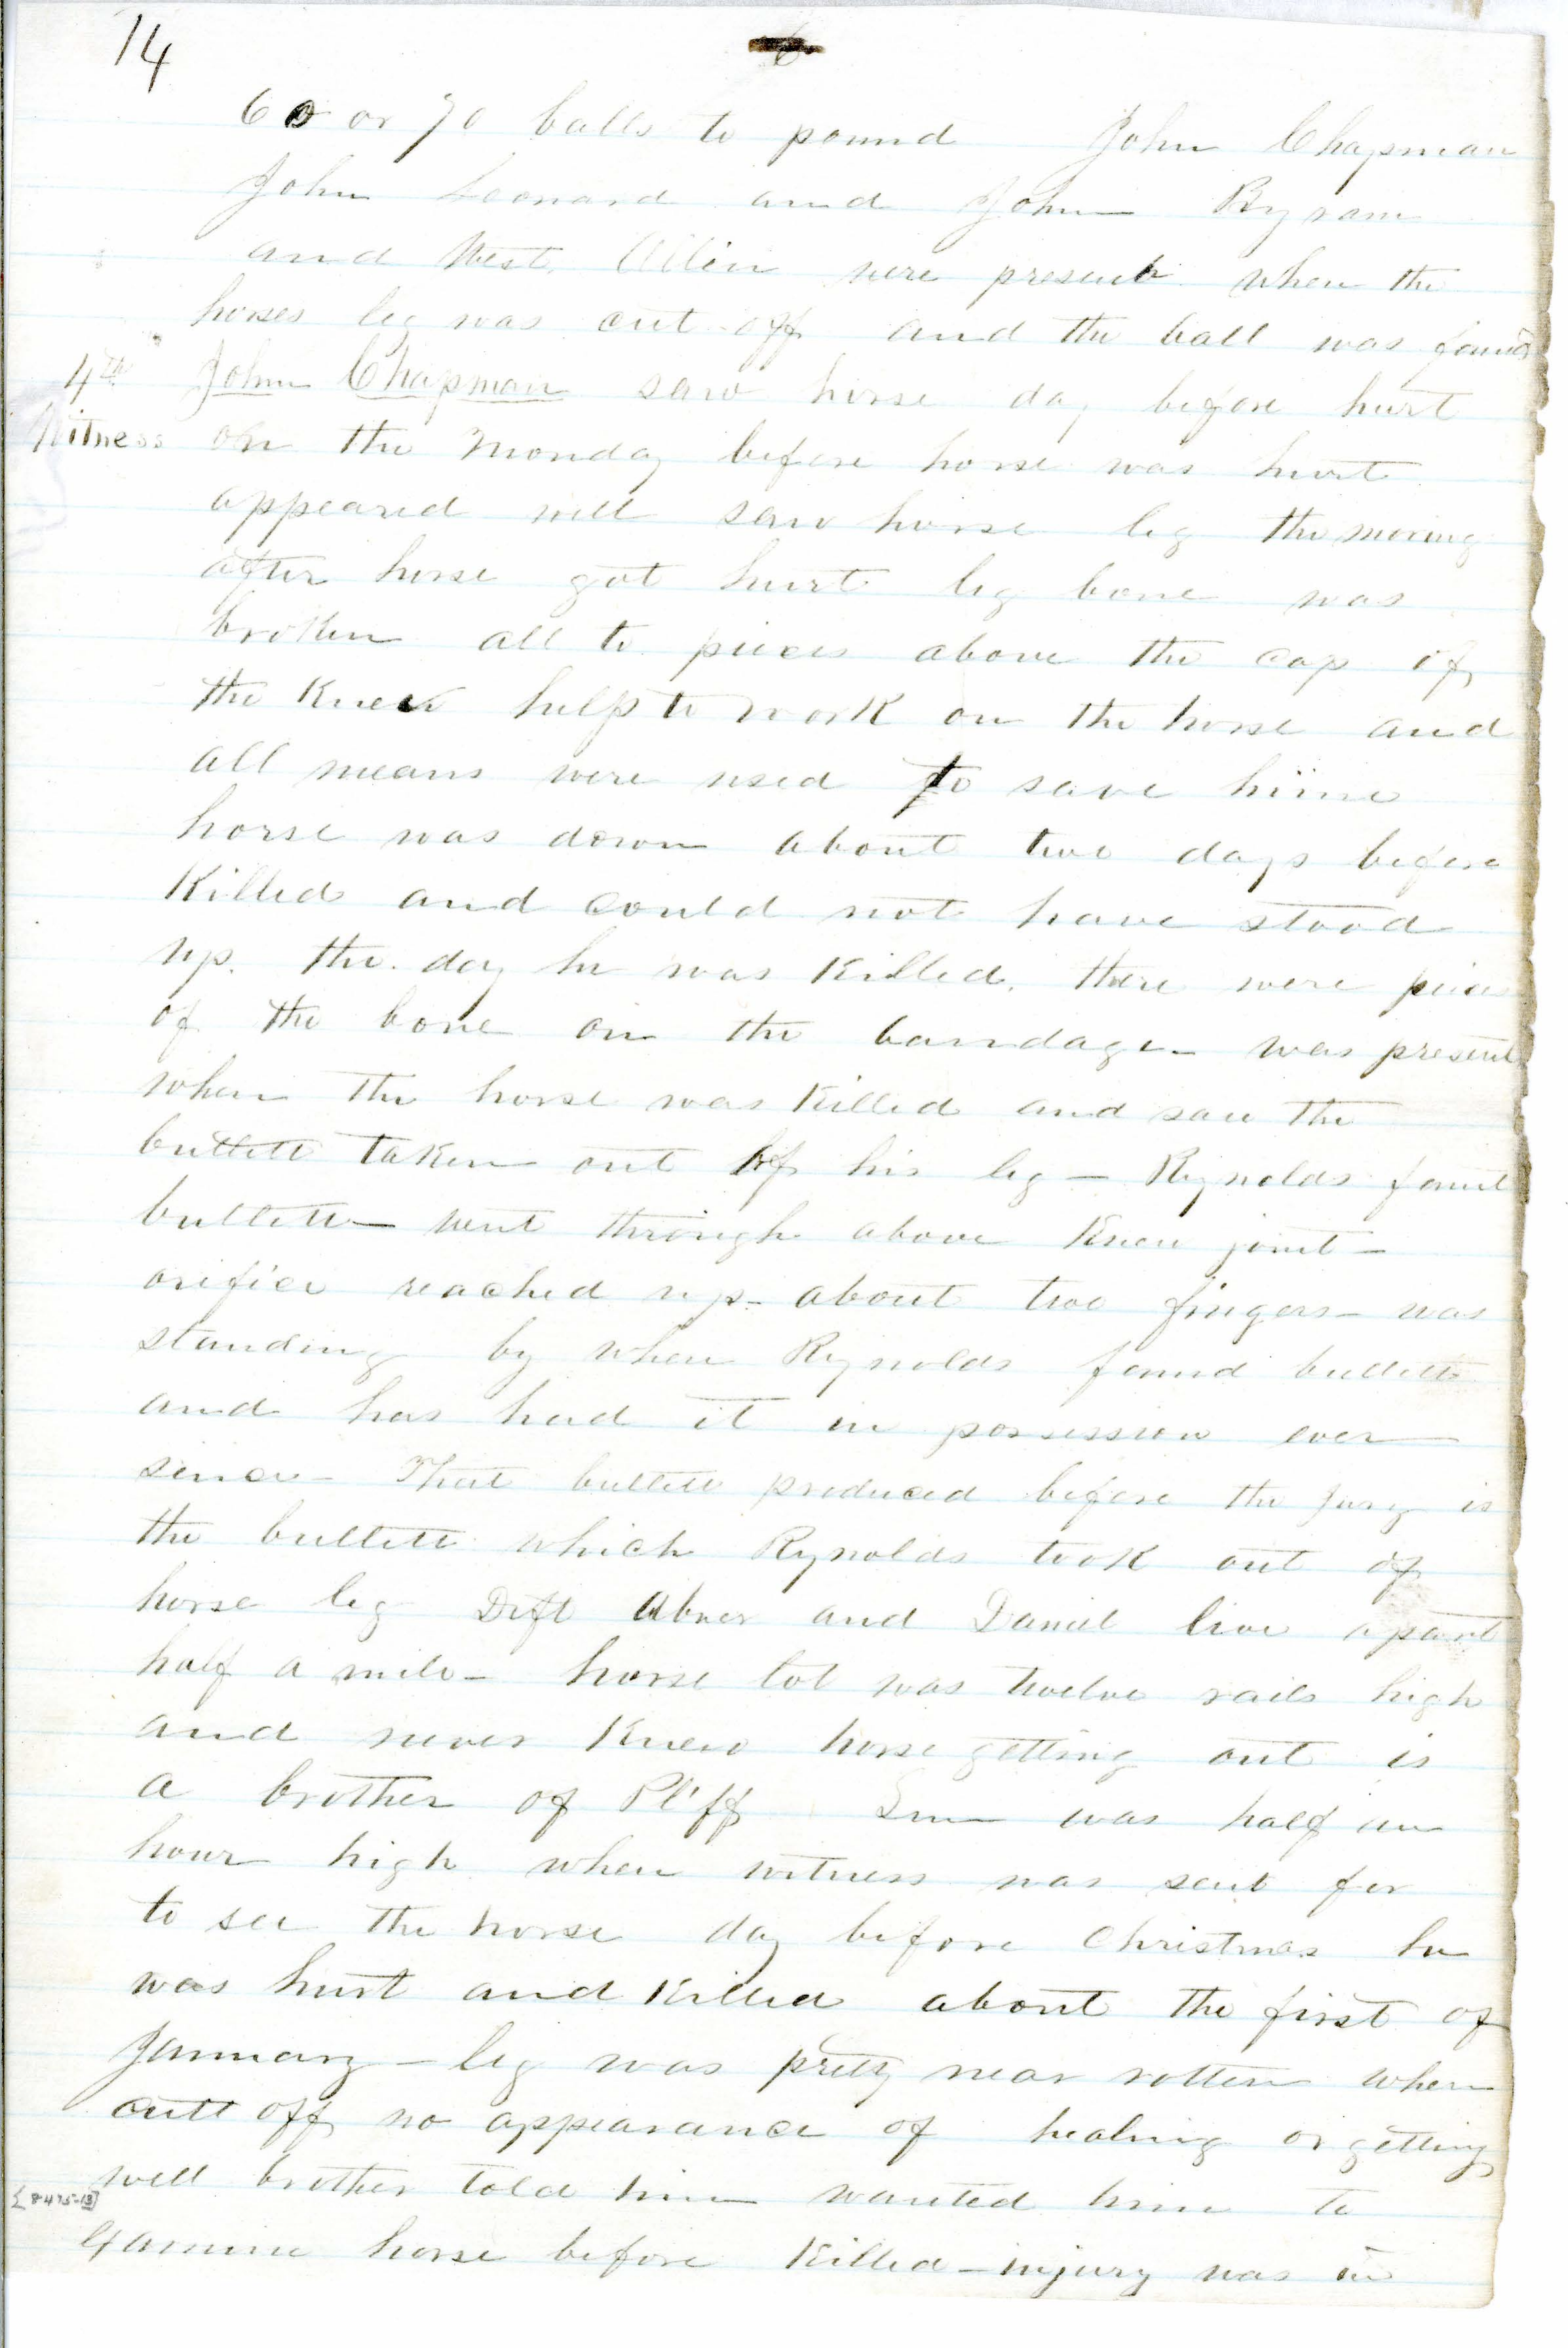 14
6
60 or 70 balls to pound John Chapman
John Leonard and John Byram
and West. Allin were present when the
horses leg was cut off and the ball was found
4th Witness
John Chapman saw horse day before hurt
on the Monday before horse was hurt
appeared well saw horse leg the morning
after horse got hurt leg bone was
broken all to pieces above the cap of
the Knee help to work on the horse and
all means were used to save hime
horse was down about two days before
Killed and could not have stood
up. the day he was Killed. there were pieces
of the bone on the bandage - was present
when the horse was Killed and saw the
bullett taken out of his leg - Rynolds found
bullett - went through above Knee joint -
orifice reached up - about two fingers - was
standing by when Rynolds found bullett
and has had it in possession ever
since - That bullett produced before the jury is
the bullett which Rynolds took out of
horse leg Deft Abner and Daniel live apart
half a mile - horse lot was twelve rails high
and never Knew horse getting out is
a brother of Pl'ff Sun was half an
hour high when witness was sent for
to see the horse day before Christmas he
was hurt and Killed about the first of
January - leg was pretty near rotten when
cutt off no appearance of healing or getting
well brother told him wanted him to
[8475-13]
Examine horse before Killed - injury was in